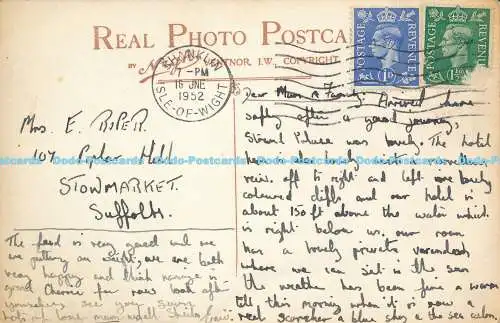 REAL PHOTO POSTCARD
BY VENTNOR, I.W., COPYRIGHT
SHANKLIN
7 - PM
16 JNE
1952
ISLE-OF-WIGHT
POSTAGE REVENUE
1D
POSTAGE REVENUE
Mrs E. PIPER.
107 Hill
STOWMARKET.
Suffolk.
Dear Mum & Family, Arrived here
safely after a good journey,
was lovely. The hotel
here is also lovely with a marvellous
view. off to right and left are lovely
coloured cliffs and our hotel is
about 150 ft above the water which
is right below us. our room
has a lovely private verandah
where we can sit in the sun
the weather has been fine & warm
till this morning when it is now a
real scorcher a blue sky & the sea calm
The food is very good and we
are putting on we are both
very happy and think marriage is
good Cheerio for now look after
yourselves see you soon
lots of love mum & all Sheila
Dodo-Postcards